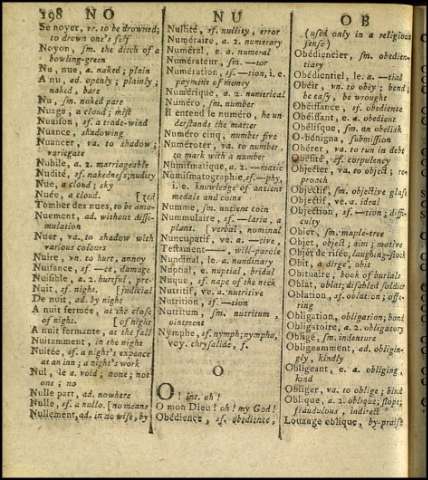 198 NO
NU
OB
Se noyer, vr. to be drowned;
to drown one's self
Noyon, sm. the ditch of a
bowling-green
Nu, nue, a. naked; plain
A nu, ad. openly; plainly;
naked, bare
Nu, sm. naked part
Nuage, a cloud; mist
Nuaison, sf. a trade-wind
Nuance, shadowing
Nuancer, va. to shadow;
variegate
Nubile, a. 2. marriageable
Nudité, sf. nakedness; nudity
Nue, a cloud; sky
Nuée, a cloud.
Tomber des nues, to be amaz-
Nuement, ad. without dissi-
mulation
Nuer, va. to shadow with
various colours
Nuire, vn. to hurt, annoy
Nuisance, sf. —ce, damage
Nuisible, a. 2. hurtful, pre-
Nuit, sf. night. [judicial
De nuit, ad. by night
A nuit fermée, at the close
of night. [of night
A nuit fermante, at the fall
Nuitamment, in the night
Nuitée, sf. a night's expence
at an inn; a night's work
Nul, le a. void; none; not
one; no
Nulle part, ad. nowhere
Nulle, sf. a nullo. [no means
Nullement, ad. in no wise, by
Nullité, sf. nullity, error
Numéraire, a. 2. numerary
Numéral, e a. numeral
Numérateur, sm. —tor
Numération, sf. —tion, i. e.
payment of money
Numérique, a. 2. numerical
Numéro, sm. number
Il entend le numéro, he un-
derstands the matter
Numéro cinq, number five
Numéroter, va. to number
to mark with a number
Numismatique, a. 2. —matic
Numismatographie, sf. —phy,
i. e. knowledge of ancient
medals and coins
Numme, sm. ancient coin
Nummulaire, sf. —laria, a
plant. [verbal, nominal
Nuncupatif, ve a. —tive,
Testament —, will-parole
Nundinal, le. a. nundinary
Nuptial, e a. nuptial, bridal
Nuque, sf. nape of the neck
Nutritif, ve. a. nutritive
Nutrition, sf. —tion
Nutritum, sm. nutritum,
ointment
Nymphe, sf. nymph; nympha,
voy. chrysalide, f.
O
O! int. oh!
O mon Dieu! oh! my God!
Obédience, sf. obedience,
(used only in a religious
sense)
Obédiencier, sm. obedien-
tiary
Obédientiel, le. a. —tial
Obéir, vn. to obey; bend;
be easy, be wrought
Obéissance, sf. obedience
Obéissant, e a. obedient
Obélisque, sm. an obelisk
Obénigna, submission
Obérer, va. to run in debt
Obésité, sf. corpulency
Objecter, va. to object; re-
proach
Objectif, sm. objective glass
Objectif, ve. a. ideal
Objection, sf. —tion; diffi-
culty
Obier, sm. maple-tree
Objet, object; aim; motive
Objet de risée, laughing-stock
Obit, a dirge, obit
Obituaire, book of burials
Oblat, oblat; disabled soldier
Oblation, sf. oblation; offe-
ring
Obligation, obligation; bond
Obligatoire, a. 2. obligatory
Obligé, sm. indenture
Obligeamment, ad. obligin-
gly, kindly
Obligeant, e a. obliging,
kind
Obliger, va. to oblige; bind
Oblique, a. 2. oblique; slope;
fraudulous, indirect
Louange oblique, by-praise